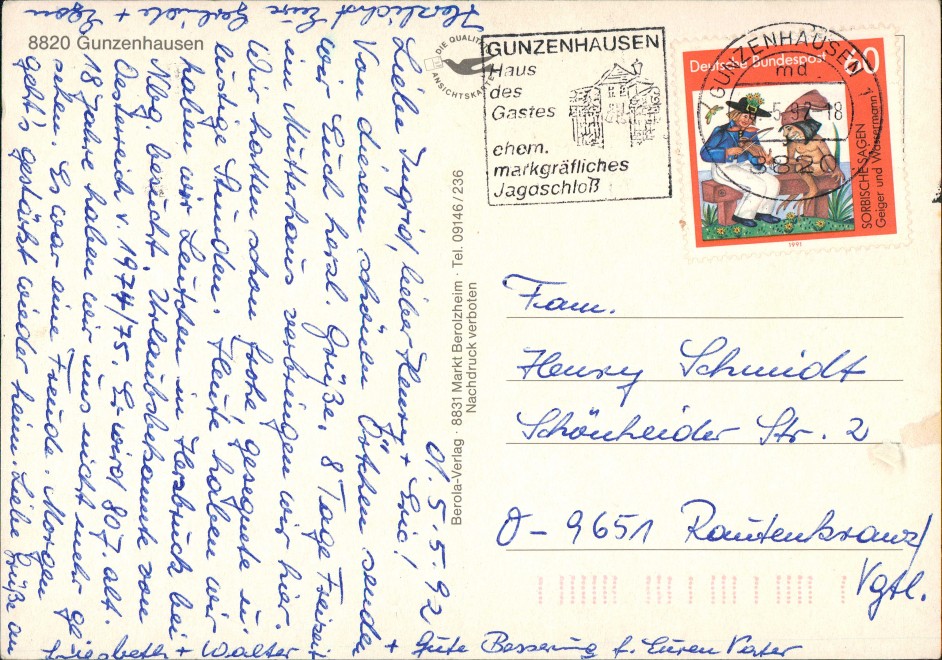 8820 Gunzenhausen
DIE QUALITÄTS
ANSICHTSKARTE
GUNZENHAUSEN
Haus
des
Gastes
ehem.
markgräfliches
Jagdschloß
GUNZENHAUSEN 1
md
5.92-18
8820
Deutsche Bundespost 60
SORBISCHE SAGEN
Geiger und Wassermann
1991
Berola-Verlag · 8831 Markt Berolzheim · Tel. 09146/236
Nachdruck verboten
01.5.5.92
Liebe Ingrid, lieber Henry + Eric!
Von diesem schönen Örtchen senden
wir Euch herzl. Grüße. 8 Tage Freizeit
im Mutterhaus verbringen wir hier.
Wir hatten schon frohe, gesegnete u.
lustige Stunden. Heute haben wir
haben wir Leutchen in Hersbruck bei
Nbg. besucht. Urlaubsbekannte von
Oesterreich v. 1974/75. Er wird 80 J. alt.
18 Jahre haben wir uns nicht mehr ge
sehen. Es war eine Freude. Morgen
geht's gestärkt wieder heim. Liebe Grüße an
Liesbeth + Walter + Gute Besserung f. Euren Vater
Herzlichst Eure Gerlinde + Egon
Fam.
Henry Schmidt
Schönheider Str. 2
O-9651 Rautenkranz/
Vgtl.